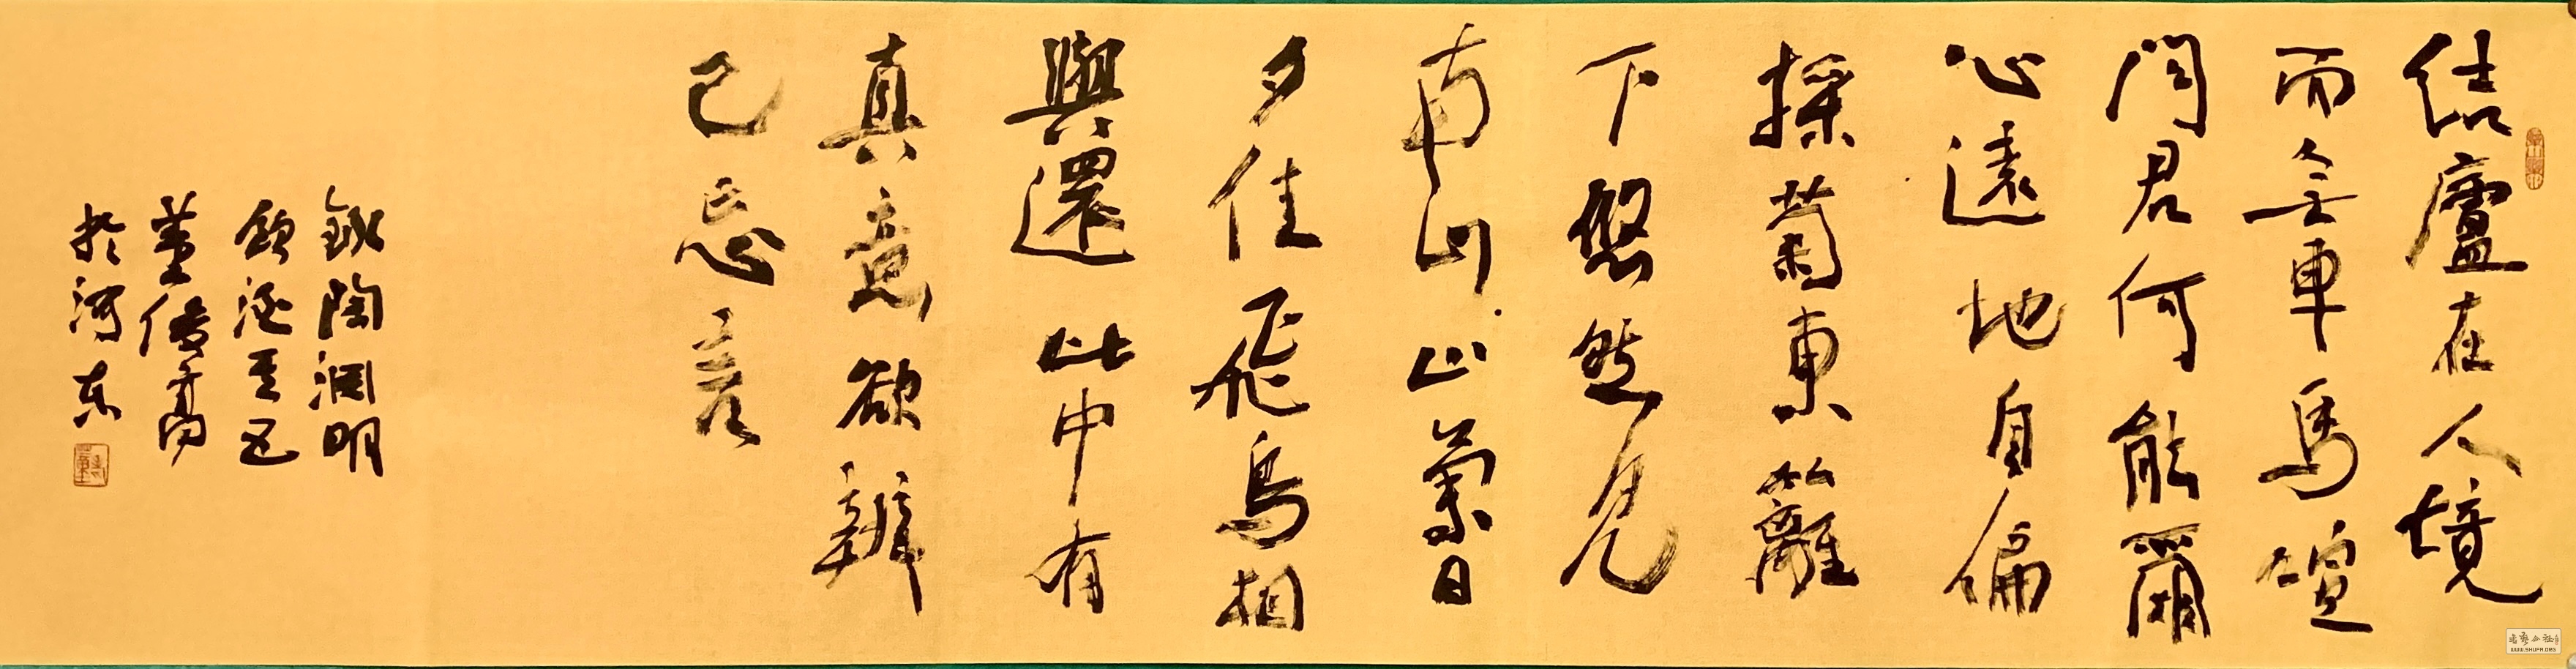 結廬在人境
而無車馬喧
問君何能爾
心遠地自偏
採菊東籬
下悠然見
南山山氣日
夕佳飛鳥相
與還此中有
真意欲辨
已忘言
錄陶淵明
飲酒其五
董俊
於河東
WWW.SHUFA.ORG